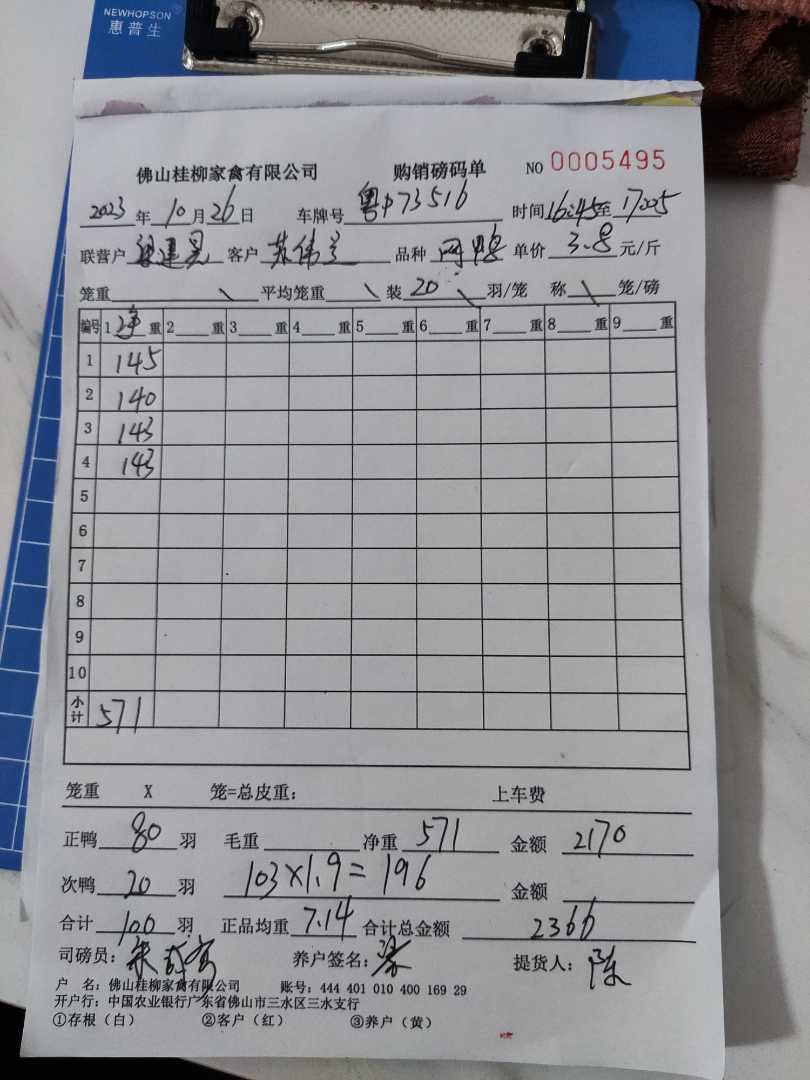 NEWHOPSON
惠普生
佛山桂柳家禽有限公司 购销磅码单 NO 0005495
2023年10月26日 车牌号 粤P73516 时间16:45至17:05
联营户 客户 苏伟 品种 网鸭 单价 3.8 元/斤
笼重 平均笼重 装 20 羽/笼 称 笼/磅
编号 1 净 重 2 重 3 重 4 重 5 重 6 重 7 重 8 重 9 重
1 145
2 140
3 143
4 143
5
6
7
8
9
10
小计 571
笼重 X 笼=总皮重: 上车费
正鸭 80 羽 毛重 净重 571 金额 2170
次鸭 20 羽 103×1.9=196 金额
合计 100 羽 正品均重 7.14 合计总金额 2366
司磅员: 养户签名: 梁 提货人: 陈
户 名: 佛山桂柳家禽有限公司 账号: 444 401 010 400 169 29
开户行: 中国农业银行广东省佛山市三水区三水支行
①存根(白) ②客户(红) ③养户(黄)